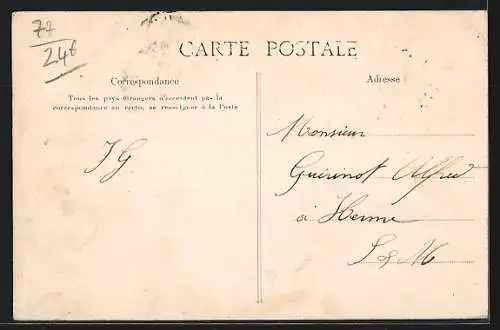 77
246
CARTE POSTALE
Correspondance
Tous les pays étrangers n'acceptent pas la
correspondance au recto, se renseigner à la Poste
JG
Adresse
Monsieur
Guérinot Alfred
à Herme
S & M